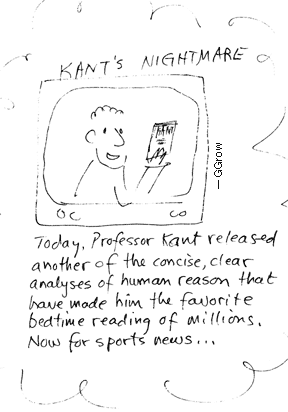 KANT'S NIGHTMARE
KANT
— GGrow
Today, Professor Kant released
another of the concise, clear
analyses of human reason that
have made him the favorite
bedtime reading of millions.
Now for sports news...